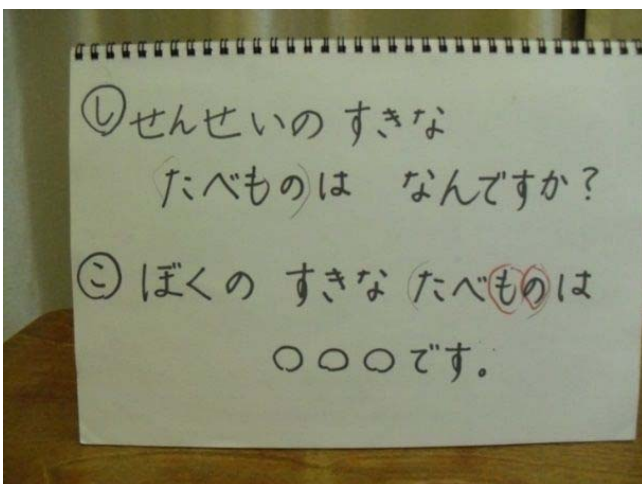 し せんせいの すきな
(たべもの)は なんですか?
こ ぼくの すきな (たべもの)は
○○○です。